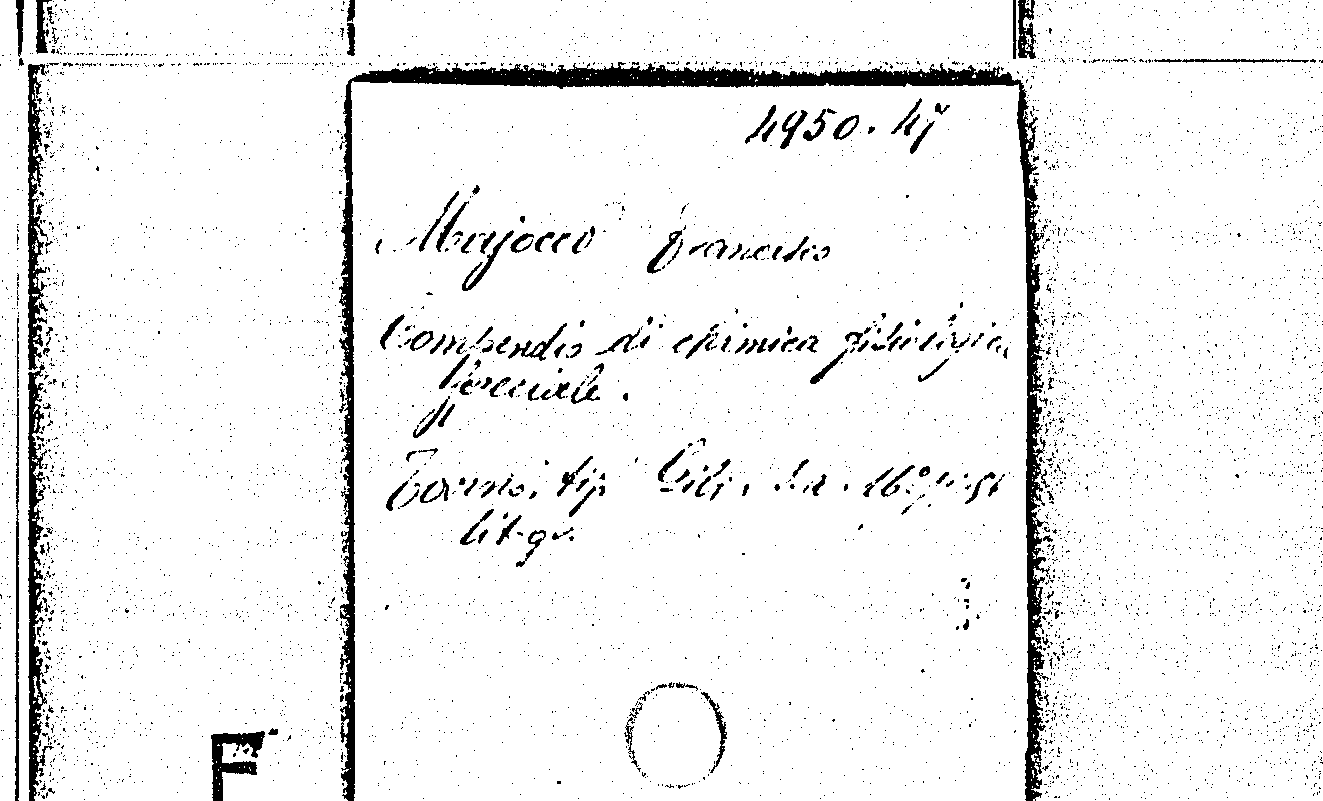 4950. 47
Majocco Francesco
Compendio di chimica fisiologica
speciale.
Torino, tip. Gili, s.a. 16°
lit-gr.
F